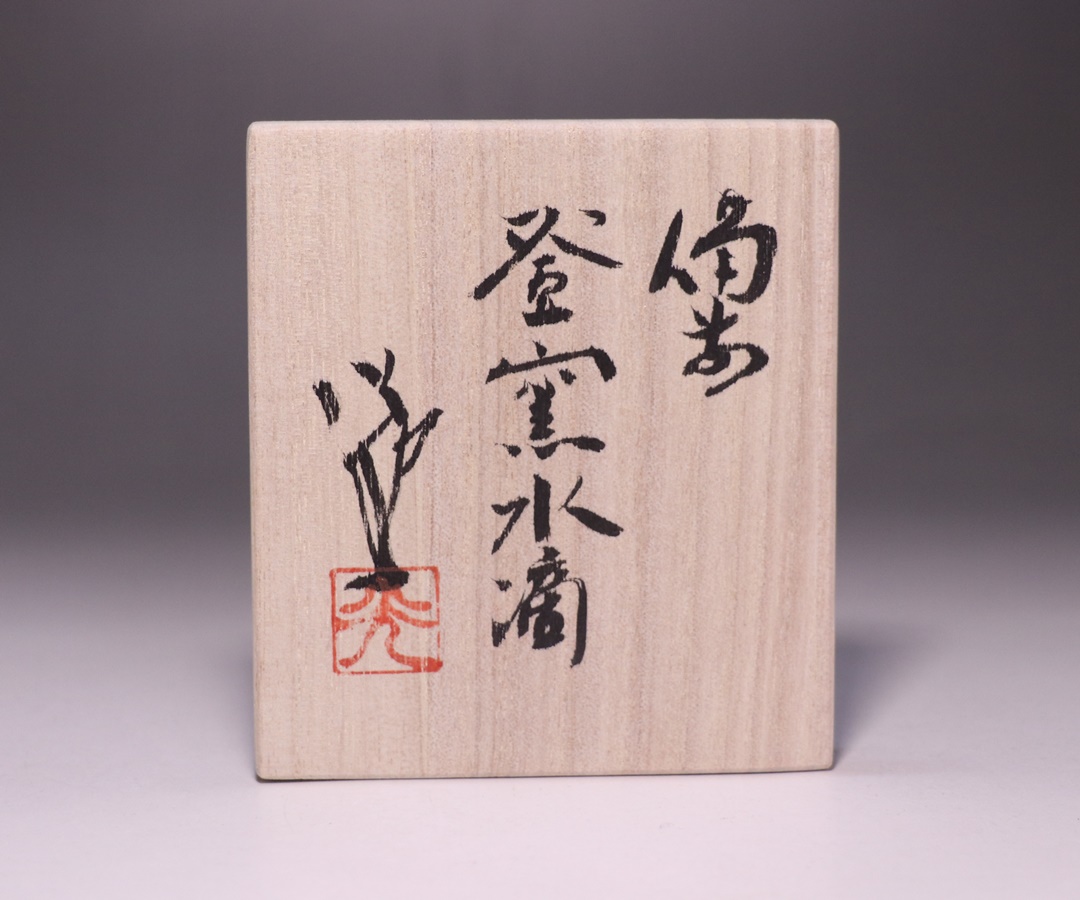 備前
登窯水滴
光